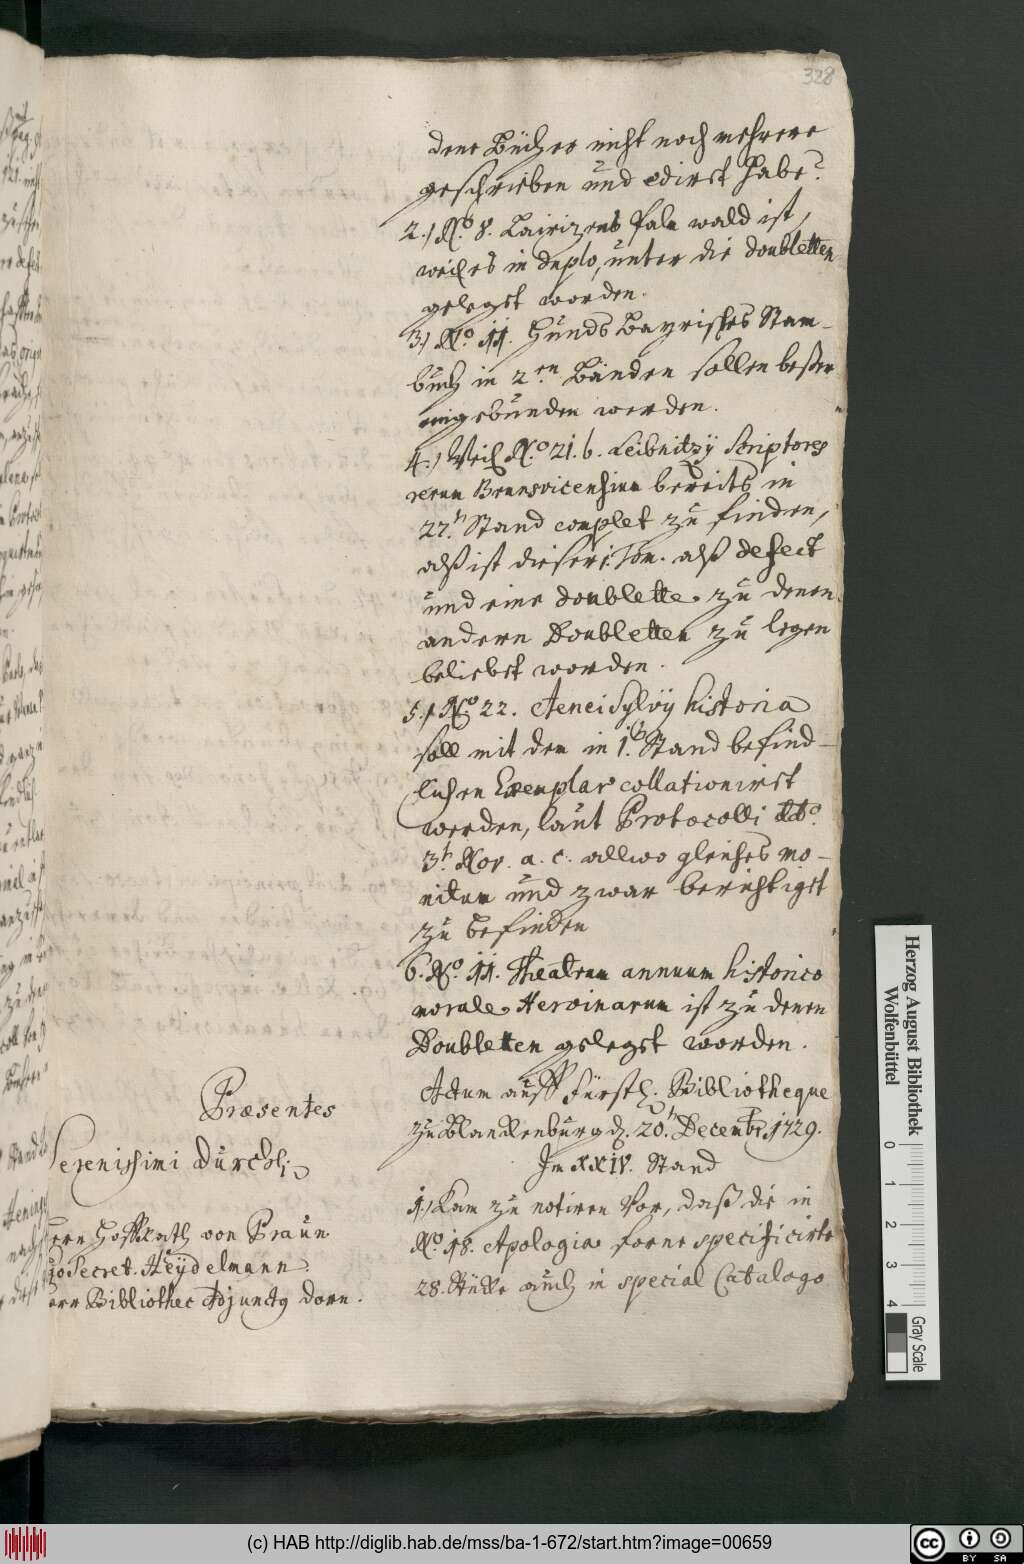 328
dene Bücher nicht noch mehrere
geschrieben und edirt habe?
2.) No. 8. Lairizens Palm wald ist,
weil es in duplo, unter die doubletten
gelegt worden.
3.) No. 11. Hunds Bayrisches Stam-
buch in 2en Bänden sollen beßer
eingebunden werden.
4.) Weil No. 21. b. Leibnitzij Scriptores
rerum Brunsvicensium bereits in
27.t Stand complet zu finden,
alß ist dieser Tom. alß defect
und eine doublette zu denen
andern Doubletten zu legen
beliebet worden.
5.) No. 22. Aenei Sylvij historia
soll mit dem in 1.t Stand befind-
lichen Exemplar collationirt
werden, laut Protocolli ddo.
3.t Nov. a. c. allwo gleiches mo-
nitum und zwar berichtiget
zu befinden
6. No. 11. Theatrum annuum historico
morale Heroinarum ist zu denen
Doubletten gelegt worden.
Præsentes
Serenissimi Durchl.
Hofrath von Praun
Secret. Heydelmann.
Bibliothec Adjunctg Dorn.
Actum auff Fürstl. Bibliotheque
zu Blanckenburg d. 20.t Decembr. 1729.
Im XXIV. Stand
1.) Kam zu notiren vor, daß die in
No. 18. Apologia forne specificirte
28. Stücke auch in special Catalogo
Herzog August Bibliothek
Wolfenbüttel
0 1 2 3 4
Gray Scale
(c) HAB http://diglib.hab.de/mss/ba-1-672/start.htm?image=00659
cc BY SA